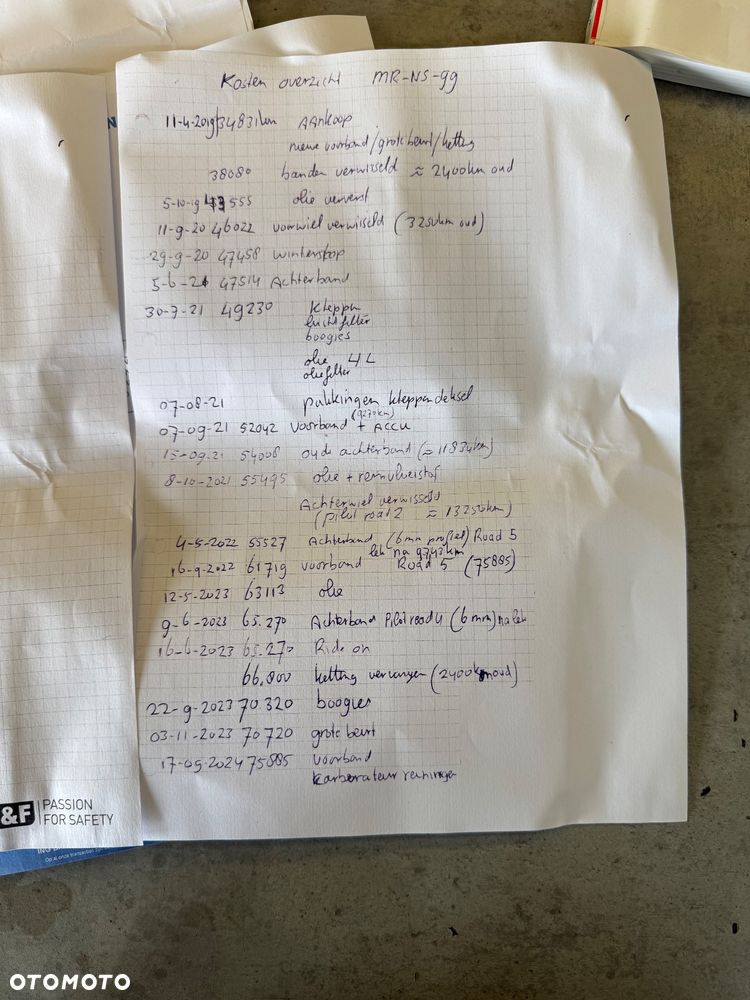 Kosten overzicht MR-NS-99
11-4-2019 34831km AANkoop
nieuwe voorband/grote beurt/ketting
38080 banden verwisseld ≈ 2400km oud
5-10-19 43555 olie ververst
11-9-20 46022 voorwiel verwisseld (3250km oud)
29-9-20 47458 winterstop
5-6-21 47514 Achterband
30-7-21 49230 kleppen
luchtfilter
boogies
olie 4L
oliefilter
07-08-21 pakkingen kleppendeksel
(9270km)
07-09-21 52042 voorband + ACCU
15-09-21 54008 oude achterband (≈11834km)
8-10-2021 55495 olie + remvloeistof
Achterwiel verwisseld
(pilot road 2 ≈ 13250km)
4-5-2022 55527 Achterband (6mm profiel) Road 5
lek na 9743km
16-9-2022 61719 voorband Road 5 (75885)
12-5-2023 63113 olie
9-6-2023 65.270 Achterband Pilot road 4 (6mm) na lek
16-6-2023 65.270 Ride on
66.800 ketting vervangen (2400km oud)
22-9-2023 70320 boogies
03-11-2023 70720 grote beurt
17-05-2024 75885 voorband
karborateur reinigen
&F PASSION
FOR SAFETY
OTOMOTO